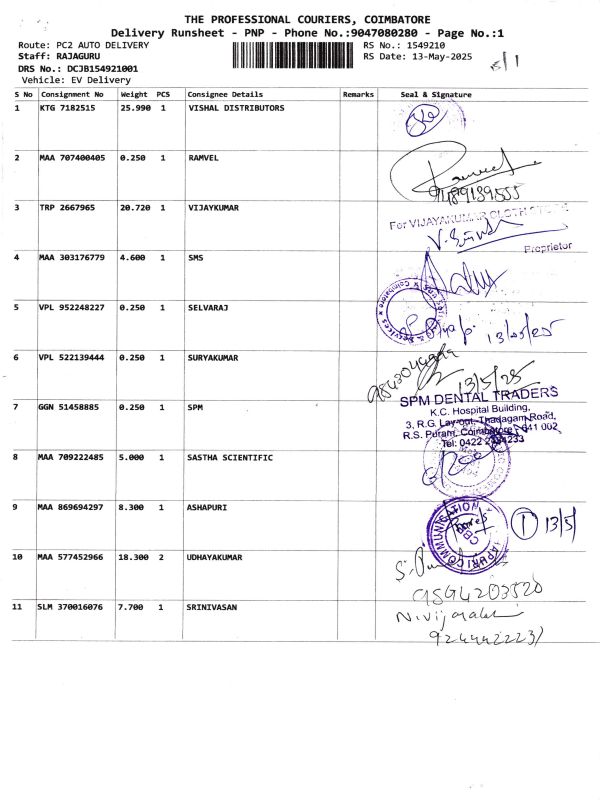 THE PROFESSIONAL COURIERS, COIMBATORE
Delivery Runsheet - PNP - Phone No.:9047080280 - Page No.:1
Route: PC2 AUTO DELIVERY RS No.: 1549210
Staff: RAJAGURU RS Date: 13-May-2025
DRS No.: DCJB154921001
Vehicle: EV Delivery
S No Consignment No Weight PCS Consignee Details Remarks Seal & Signature
1 KTG 7182515 25.990 1 VISHAL DISTRIBUTORS
2 MAA 707400405 0.250 1 RAMVEL
9489139555
3 TRP 2667965 20.720 1 VIJAYKUMAR
For VIJAYAKUMAR CLOTH STORE
Proprietor
4 MAA 303176779 4.600 1 SMS
5 VPL 952248227 0.250 1 SELVARAJ
13/05/25
6 VPL 522139444 0.250 1 SURYAKUMAR
13/5/25
7 GGN 51458885 0.250 1 SPM
SPM DENTAL TRADERS
K.C. Hospital Building,
3, R.G. Lay-out, Thadagam Road,
R.S. Puram, Coimbatore - 641 002
Tel: 0422 2
4233
8 MAA 709222485 5.000 1 SASTHA SCIENTIFIC
9 MAA 869694297 8.300 1 ASHAPURI
APURI COMMUNICATION
CBE
1 13/5
10 MAA 577452966 18.300 2 UDHAYAKUMAR
9594203520
11 SLM 370016076 7.700 1 SRINIVASAN